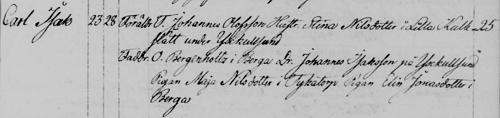 Carl Isak 23 28 Föräldr. T. Johannes Olofsson Hustr. Stina Nilsdotter i Lilla Hult- 25
slätt under Yxekullsund
Faddr. O. Bergenholtz i Berga Dr. Johannes Isaksson på Yxekullsund
Pigan Maja Nilsdotter i Pigan Elin Jonasdotter i
Berga